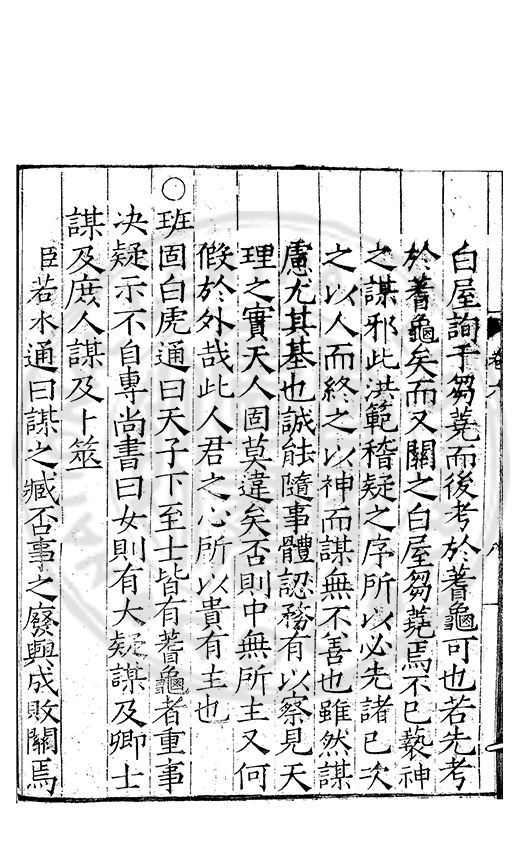 白屋詢于芻蕘而後考於蓍龜可也若先考
於蓍龜矣而又關之白屋芻蕘焉不已褻神
之謀邪此洪範稽疑之序所以必先諸已次
之以人而終之以神而謀無不善也雖然謀
慮尤其基也誠能隨事體認務有以察見天
理之實天人固莫違矣否則中無所主又何
假於外哉此人君之心所以貴有主也
○
班固白虎通曰天子下至士皆有蓍龜者重事
决疑示不自專尚書曰女則有大疑謀及卿士
謀及庶人謀及卜筮
臣若水通曰謀之臧否事之廢興成敗關焉